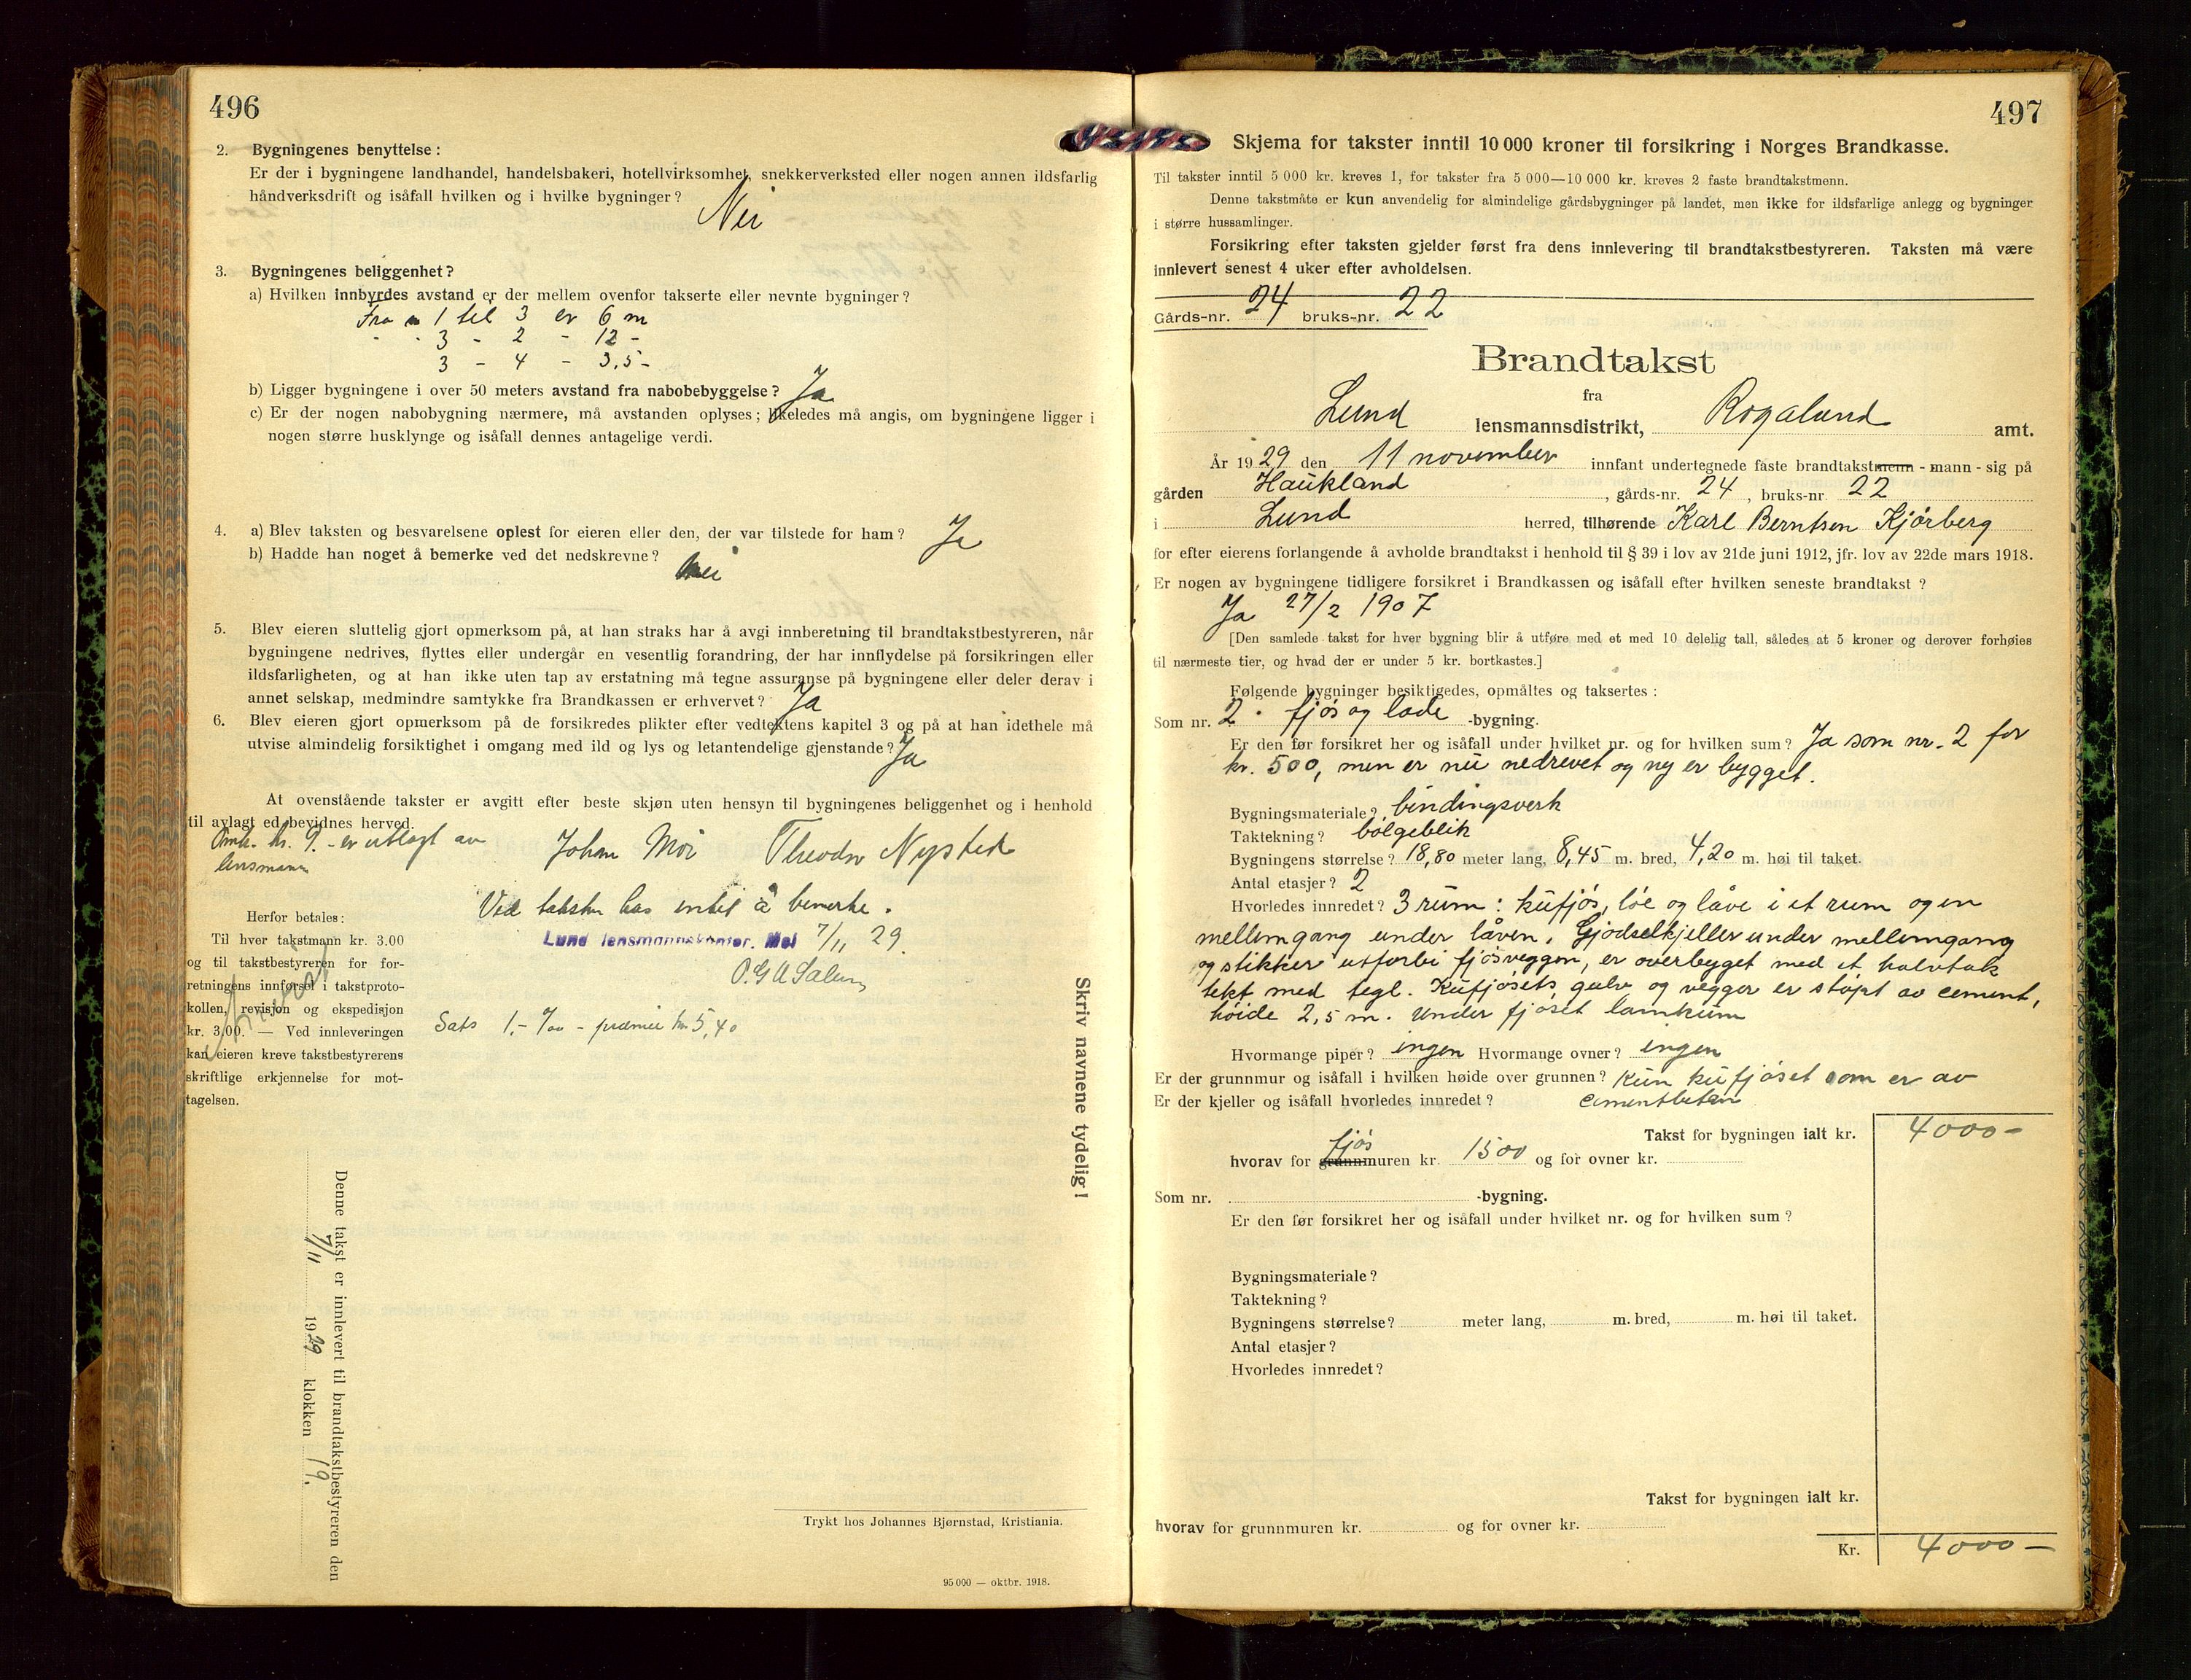 496
2. Bygningenes benyttelse:
Er der i bygningene landhandel, handelsbakeri, hotellvirksomhet, snekkerverksted eller nogen annen ildsfarlig
håndverksdrift og isåfall hvilken og i hvilke bygninger? Nei
3. Bygningenes beliggenhet?
a) Hvilken innbyrdes avstand er der mellem ovenfor takserte eller nevnte bygninger?
Fra 1 til 3 er 6 m
" " 3 - 2 - 12 -
3 - 4 - 3,5 -
b) Ligger bygningene i over 50 meters avstand fra nabobebyggelse? Ja
c) Er der nogen nabobygning nærmere, må avstanden oplyses; likeledes må angis, om bygningene ligger i
nogen større husklynge og isåfall dennes antagelige verdi.
4. a) Blev taksten og besvarelsene oplest for eieren eller den, der var tilstede for ham? Ja
b) Hadde han noget å bemerke ved det nedskrevne? Nei
5. Blev eieren sluttelig gjort opmerksom på, at han straks har å avgi innberetning til brandtakstbestyreren, når
bygningene nedrives, flyttes eller undergår en vesentlig forandring, der har innflydelse på forsikringen eller
ildsfarligheten, og at han ikke uten tap av erstatning må tegne assuranse på bygningene eller deler derav i
annet selskap, medmindre samtykke fra Brandkassen er erhvervet? Ja
6. Blev eieren gjort opmerksom på de forsikredes plikter efter vedtektens kapitel 3 og på at han idethele må
utvise almindelig forsiktighet i omgang med ild og lys og letantendelige gjenstande? Ja
At ovenstående takster er avgitt efter beste skjøn uten hensyn til bygningenes beliggenhet og i henhold
til avlagt ed bevidnes herved.
Omk. kr. 9.- er utlagt av
lensmann
Johan Moi Theodor Nysted
Ved taksten has intet å bemerke.
Lund lensmannskontor. Moi 7/11 29.
Herfor betales:
Til hver takstmann kr. 3.00
og til takstbestyreren for for-
retningens innførsel i takstproto-
kollen, revisjon og ekspedisjon
kr. 3,00. — Ved innleveringen
kan eieren kreve takstbestyrerens
skriftlige erkjennelse for mot-
tagelsen.
Sats 1.- ‰ - premie kr 5,40
Skriv navnene tydelig!
Denne takst er innlevert til brandtakstbestyreren den
7/11 1929 klokken 19.
Trykt hos Johannes Bjørnstad, Kristiania.
95 000 — oktbr. 1918.
497
Skjema for takster inntil 10 000 kroner til forsikring i Norges Brandkasse.
Til takster inntil 5 000 kr. kreves 1, for takster fra 5 000—10 000 kr. kreves 2 faste brandtakstmenn.
Denne takstmåte er kun anvendelig for almindelige gårdsbygninger på landet, men ikke for ildsfarlige anlegg og bygninger
i større hussamlinger.
Forsikring efter taksten gjelder først fra dens innlevering til brandtakstbestyreren. Taksten må være
innlevert senest 4 uker efter avholdelsen.
Gårds-nr. 24 bruks-nr. 22
Brandtakst
fra
Lund lensmannsdistrikt, Rogaland amt.
År 1929 den 11 november innfant undertegnede faste brandtakstmenn - mann - sig på
gården Haukland, gårds-nr. 24, bruks-nr. 22
i Lund herred, tilhørende Karl Berntsen Kjørberg
for efter eierens forlangende å avholde brandtakst i henhold til § 39 i lov av 21de juni 1912, jfr. lov av 22de mars 1918.
Er nogen av bygningene tidligere forsikret i Brandkassen og isåfall efter hvilken seneste brandtakst?
Ja 27/2 1907
[Den samlede takst for hver bygning blir å utføre med et med 10 delelig tall, således at 5 kroner og derover forhøies
til nærmeste tier, og hvad der er under 5 kr. bortkastes.]
Følgende bygninger besiktigedes, opmåltes og taksertes:
Som nr. 2. fjøs og lade -bygning.
Er den før forsikret her og isåfall under hvilket nr. og for hvilken sum? Ja som nr. 2 for
kr. 500, men er nu nedrevet og ny er bygget.
Bygningsmateriale? bindingsverk
Taktekning? bølgeblik
Bygningens størrelse? 18,80 meter lang, 8,45 m. bred, 4,20 m. høi til taket.
Antal etasjer? 2
Hvorledes innredet? 3 rum: kufjøs, løe og låve i et rum og en
mellemgang under låven. Gjødselkjeller under mellemgang
og stikker utforbi fjøsveggen, er overbyget med et halvtak
tekt med tegl. Kufjøsets gulv og vegger er støpt av cement,
høide 2,5 m. Under fjøset lamkum
Hvormange piper? ingen Hvormange ovner? ingen
Er der grunnmur og isåfall i hvilken høide over grunnen? Kun kufjøset som er av
Er der kjeller og isåfall hvorledes innredet? cementbetan
Takst for bygningen ialt kr. 4000-
hvorav for grunnmuren kr. fjøs 1500 og for ovner kr.
Som nr. -bygning.
Er den før forsikret her og isåfall under hvilket nr. og for hvilken sum?
Bygningsmateriale?
Taktekning?
Bygningens størrelse? meter lang, m. bred, m. høi til taket.
Antal etasjer?
Hvorledes innredet?
Takst for bygningen ialt kr.
hvorav for grunnmuren kr. og for ovner kr.
Kr. 4000-